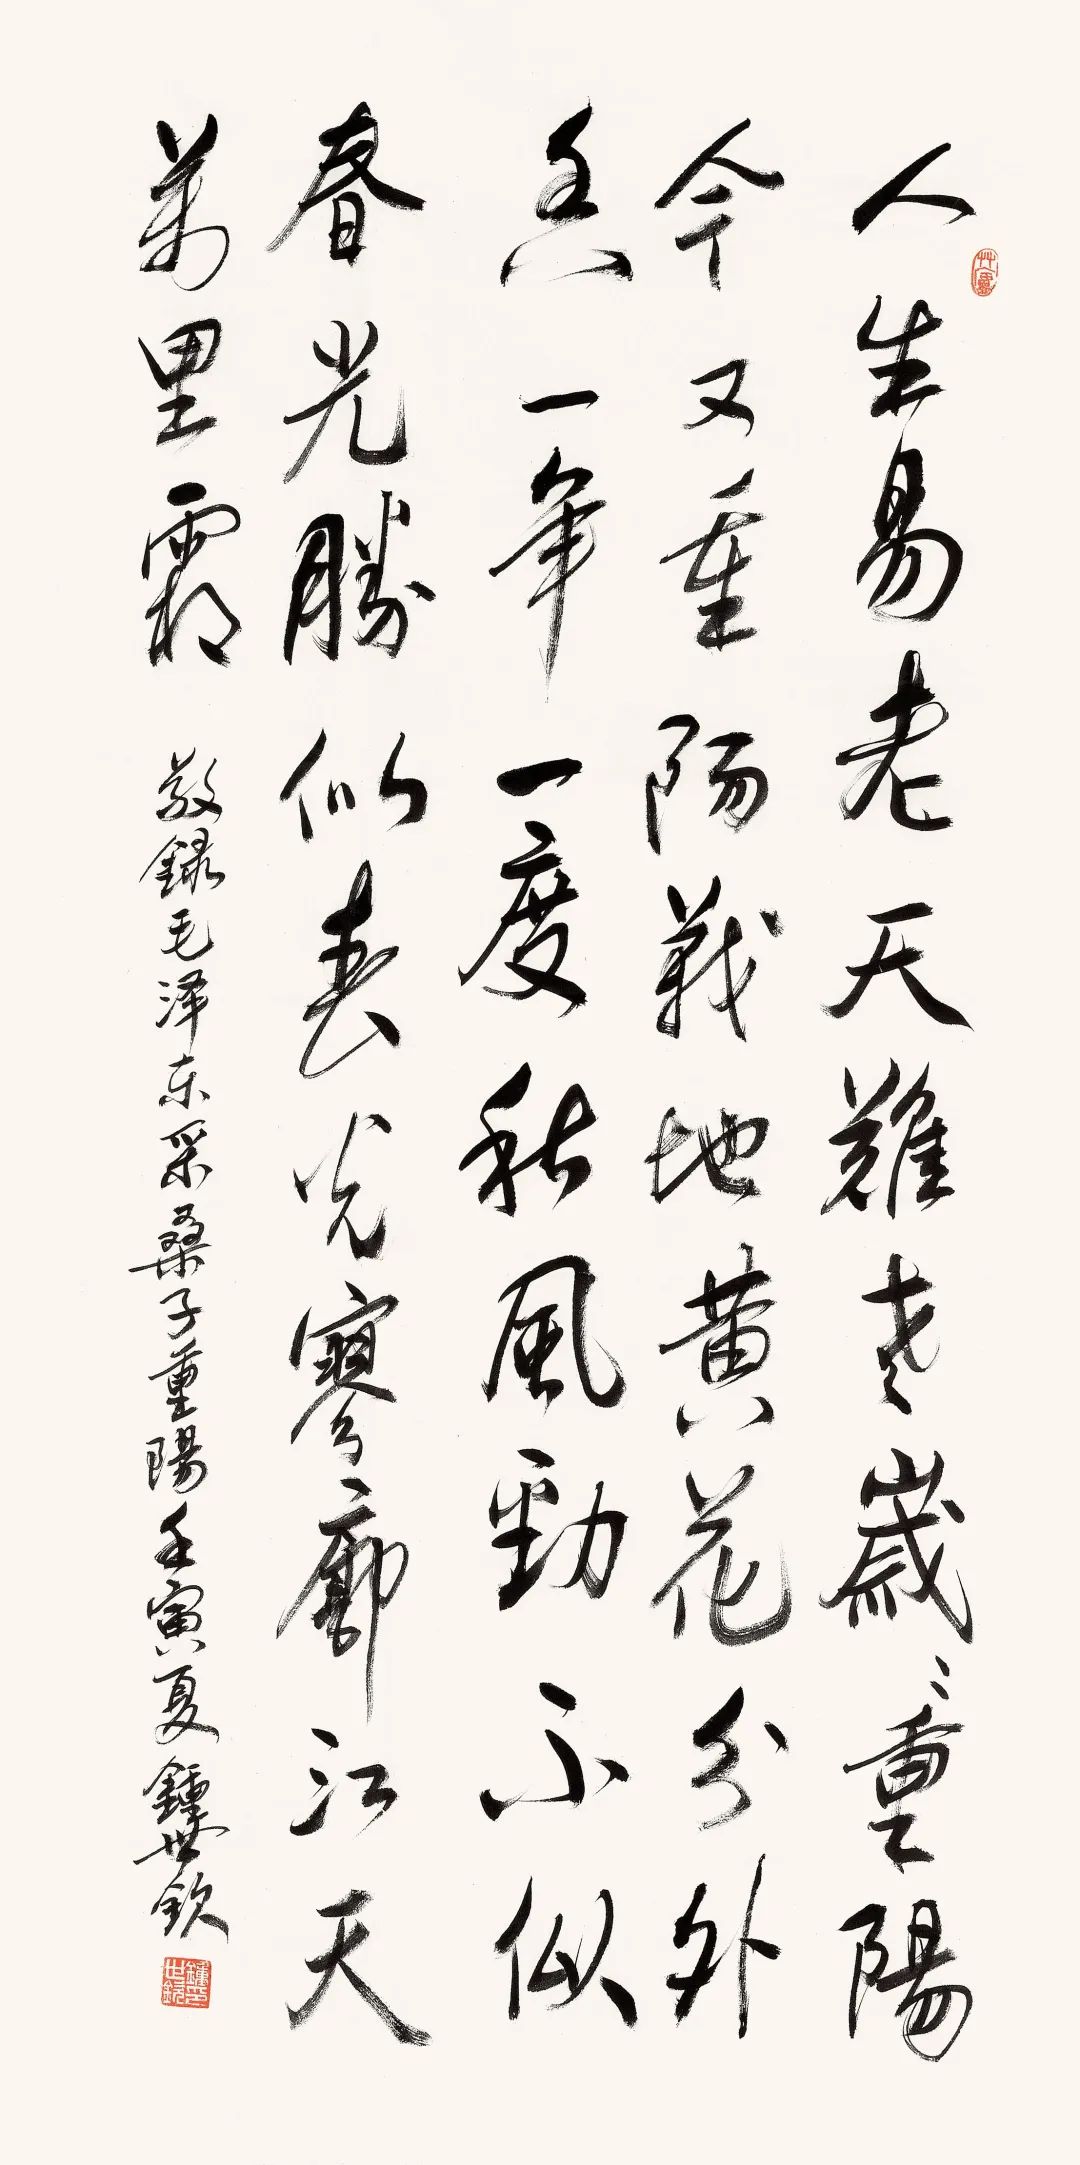 人生易老天難老歲〻重陽
今又重陽戰地黃花分外
香一年一度秋風勁不似
春光勝似春光寥廓江天
萬里霜
敬錄毛泽东采桑子重陽壬寅夏鍾世欽
鍾印世欽